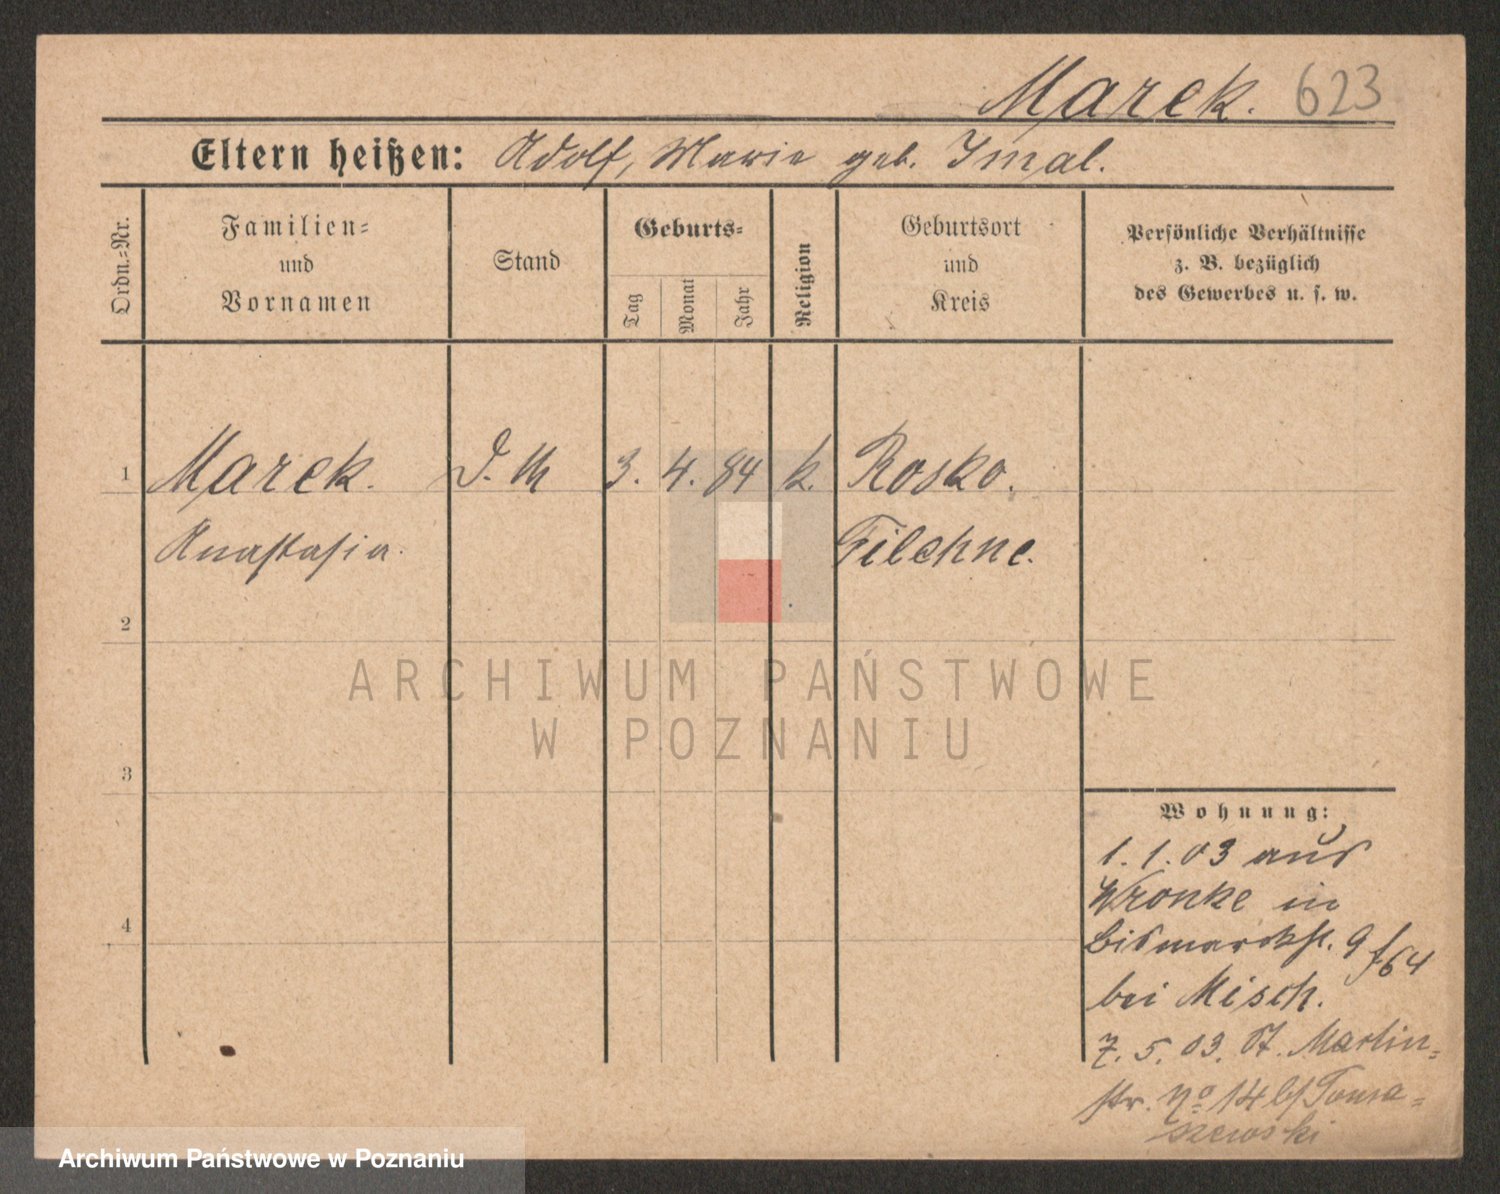 Marek. 623
Eltern heißen: Adolf, Marie geb. Smal.
Ordn.-Nr.
Familien-
und
Vornamen
Stand
Geburts-
Tag
Monat
Jahr
Religion
Geburtsort
und
Kreis
Persönliche Verhältnisse
z. B. bezüglich
des Gewerbes u. s. w.
1 Marek. D. M 3. 4. 84 k. Rosko.
Anastasia. Filehne.
2
ARCHIWUM PAŃSTWOWE
W POZNANIU
3
4
Wohnung:
1. 1. 03 aus
Wronke in
Bismarckst. 9 f64
bei Misch.
7. 5. 03. St. Martin-
str. No 14 b/Toma-
szewski
Archiwum Państwowe w Poznaniu